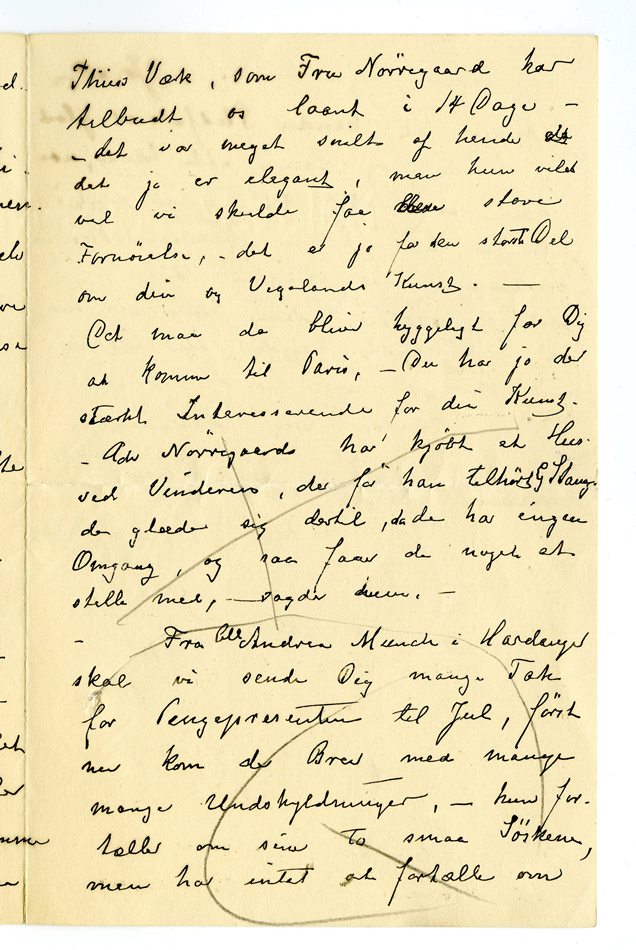 Thiis Værk, som Fru Nörregaard har
tilbudt os laant i 14 Dage –
– det var meget snilt af hende da
det jo er elegant, man hun vilde
vel vi skulde faa store
Fornöielse, – det er jo for den störste Del
om din og Vigelands Kunst. —
Det maa da bliver hyggeligt for Dig
at komme til Paris, – Du har jo der
stærkt Interesserende for din Kunst.
– Adv Nörregaards har kjöbt et Hus
ved Vinderen, der för han tilhört G Stang.
de glæder sig dertil, da de har ingen
Omgang, og saa faar de noget at
stelle med, – sagde hun. –
– Fra lille Andrea Munch i Hardanger
skal vi sende Dig mange Tak
for Pengepresenten til Jul, först
nu kom de Brev med mange
mange Undskyldninger, – hun for-
tæller om sine to smaa Söskene,
men har intet at fortælle om